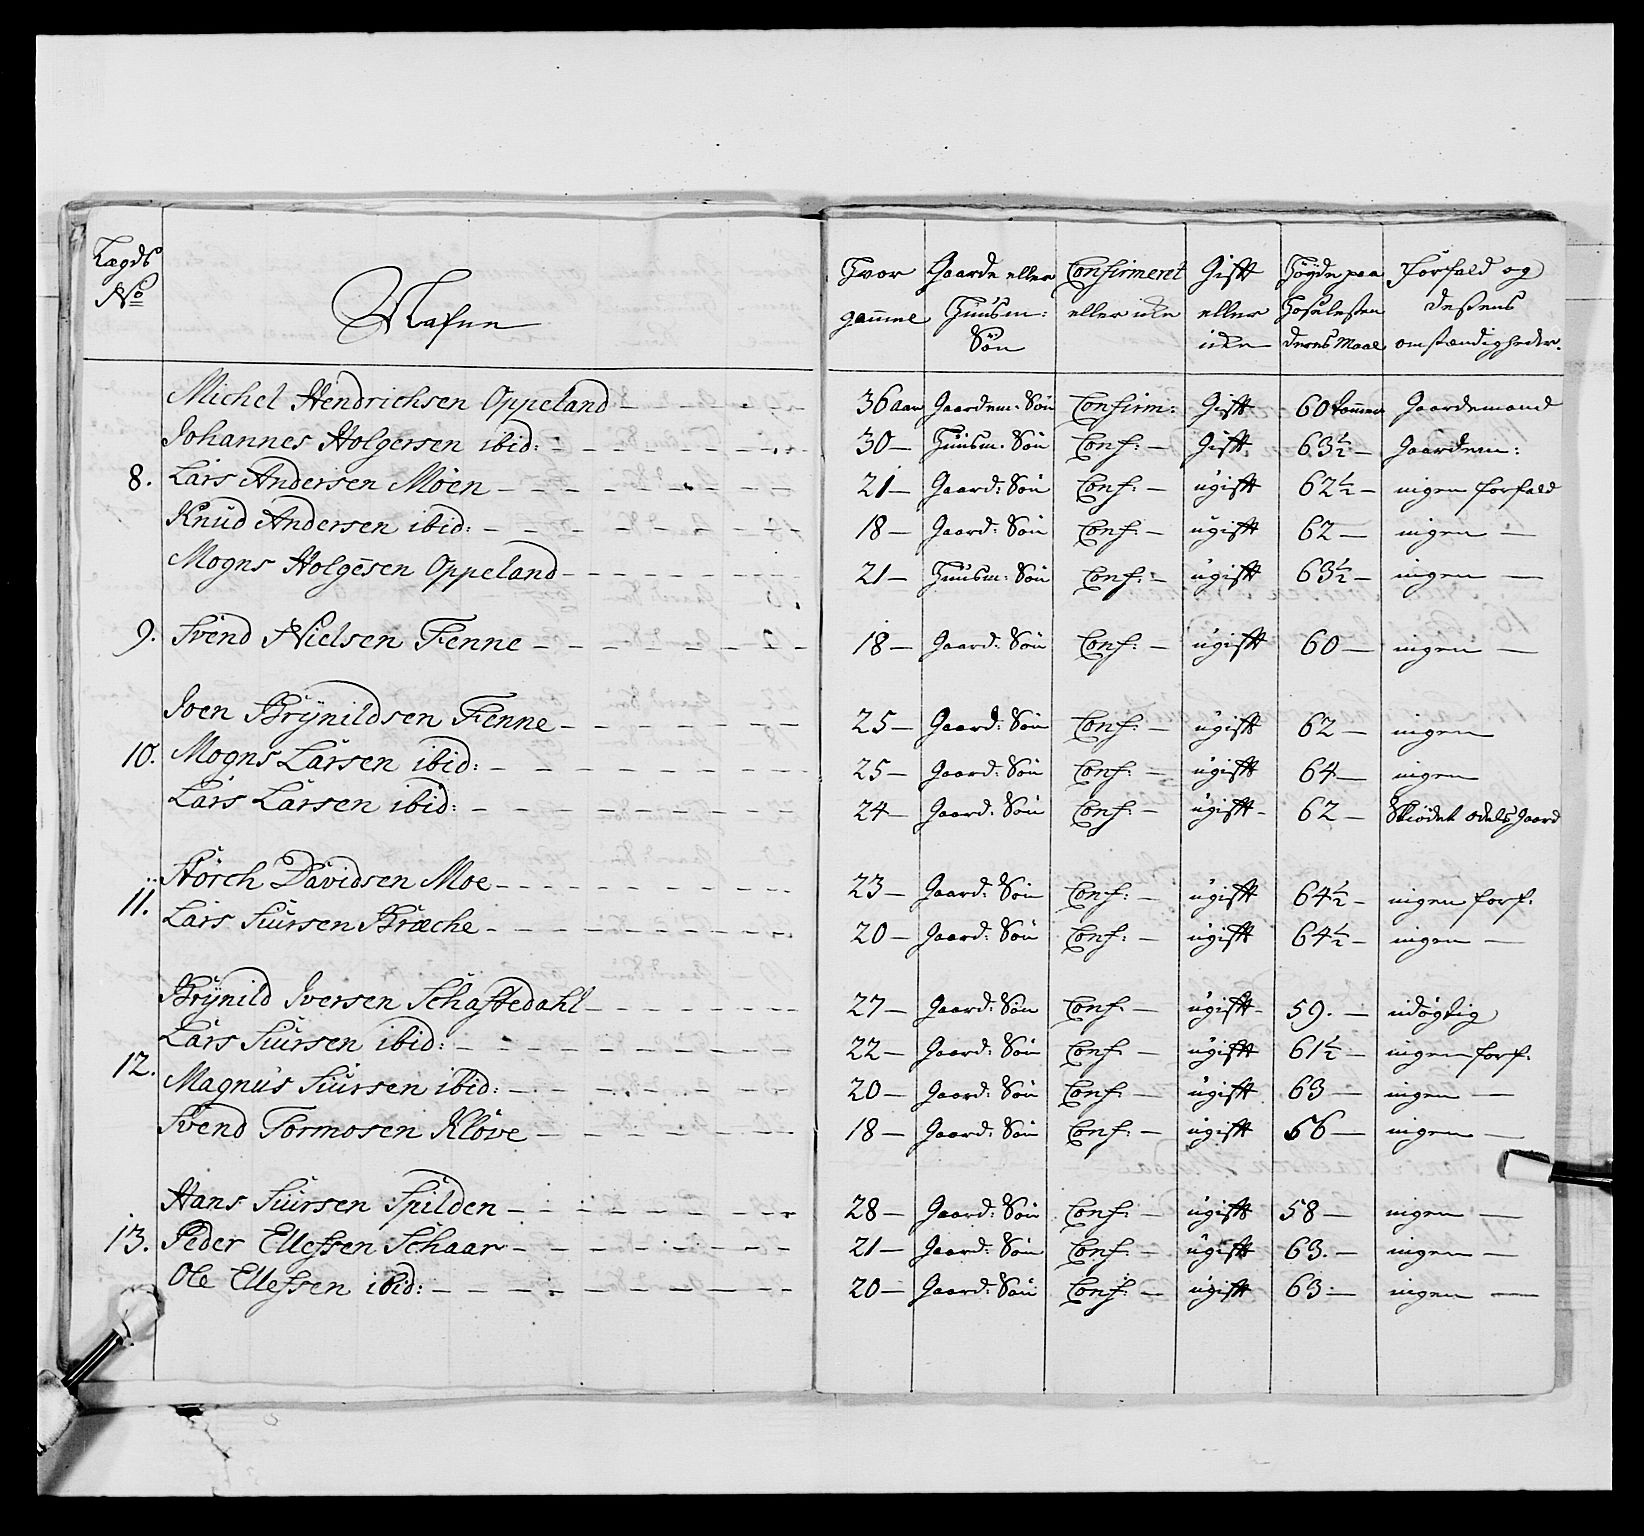 Lægds
No
Nafne
Hvor
gammel
Gaarde eller
Huusm:
Søn
Confirmeret
eller icke
Gift
eller
icke
Høyde paa
Hoselesten
deres Maal
Forfald og
deßens
omstændigheder.
Michel Hendrichsen Oppeland — 36 aar Gaardem: Søn Confirm: Gift 60 tommer Gaardemand
Johannes Holgersen ibid: — 30 — Huusm. Søn Conf: — Gift. 63½ — Gaardem:
8. Lars Andersen Moen — 21 — Gaard: Søn Conf: — ugift 62½ — ingen forfald
Knud Andersen ibid: — 18 — Gaard: Søn Conf: — ugift 62 — ingen —
Mogns Holgesen Oppeland — 21 — Huusm: Søn Conf: — ugift 63½ — ingen —
9. Svend Nielsen Fenne — 18 — Gaard: Søn Conf: — ugift 60 — ingen —
Joen Brynildsen Fenne — 25 — Gaard: Søn Conf: — ugift 62 — ingen
10. Mogns Larsen ibid: — 25 — Gaard: Søn Conf: — ugift 64 — ingen
Lars Larsen ibid: — 24 — Gaard: Søn Conf: — ugift — 62 — Skiødet odels Gaard
11. Størch Davidsen Moe — 23 — Gaard: Søn Conf: — ugift 64½ — ingen forf:
Lars Siursen Bræche — 20 — Gaard: Søn Conf: — ugift 64½ — ingen —
Brynild Iversen Schaftedahl — 27 — Gaard: Søn Conf: — ugift — 59. — udøgtig
Lars Siursen ibid: — 22 — Gaard: Søn Conf: — ugift 61½ — ingen forf:
12. Magnus Siursen ibid: — 20 — Gaard: Søn Conf: — ugift 63 — ingen —
Svend Tormosen Kløve — 18 — Gaard: Søn Conf: — ugift 56 — ingen —
Hans Siursen Spilden — 28 — Gaard: Søn Conf: — ugift 58 — ingen —
13. Peder Ellefsen Schaar — 21 — Gaard: Søn Conf: — ugift 63. — ingen —
Ole Ellefsen ibid: — 20 — Gaard: Søn Conf: — ugift 63 — ingen —